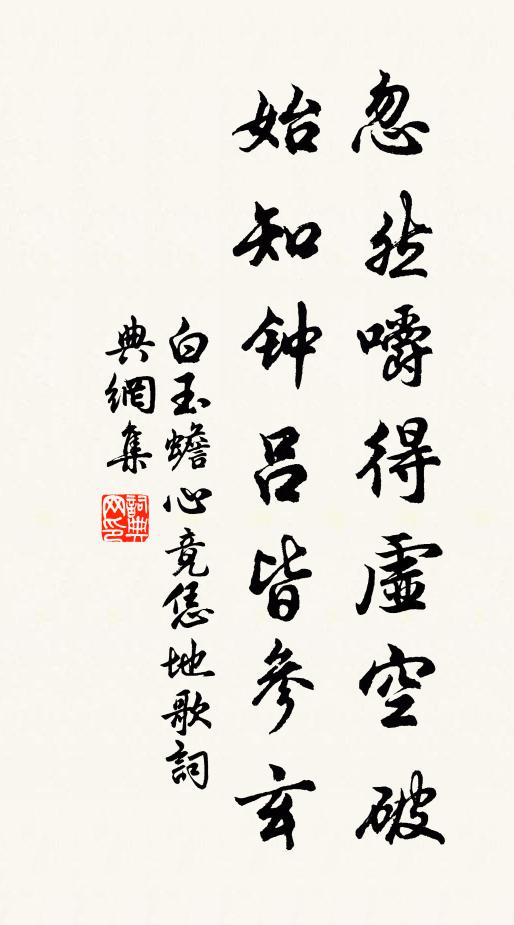 忽然嚼得虛空破
始知钟吕皆參玄
白玉蟾必竟恁地歌詞
典網集
詞典网印